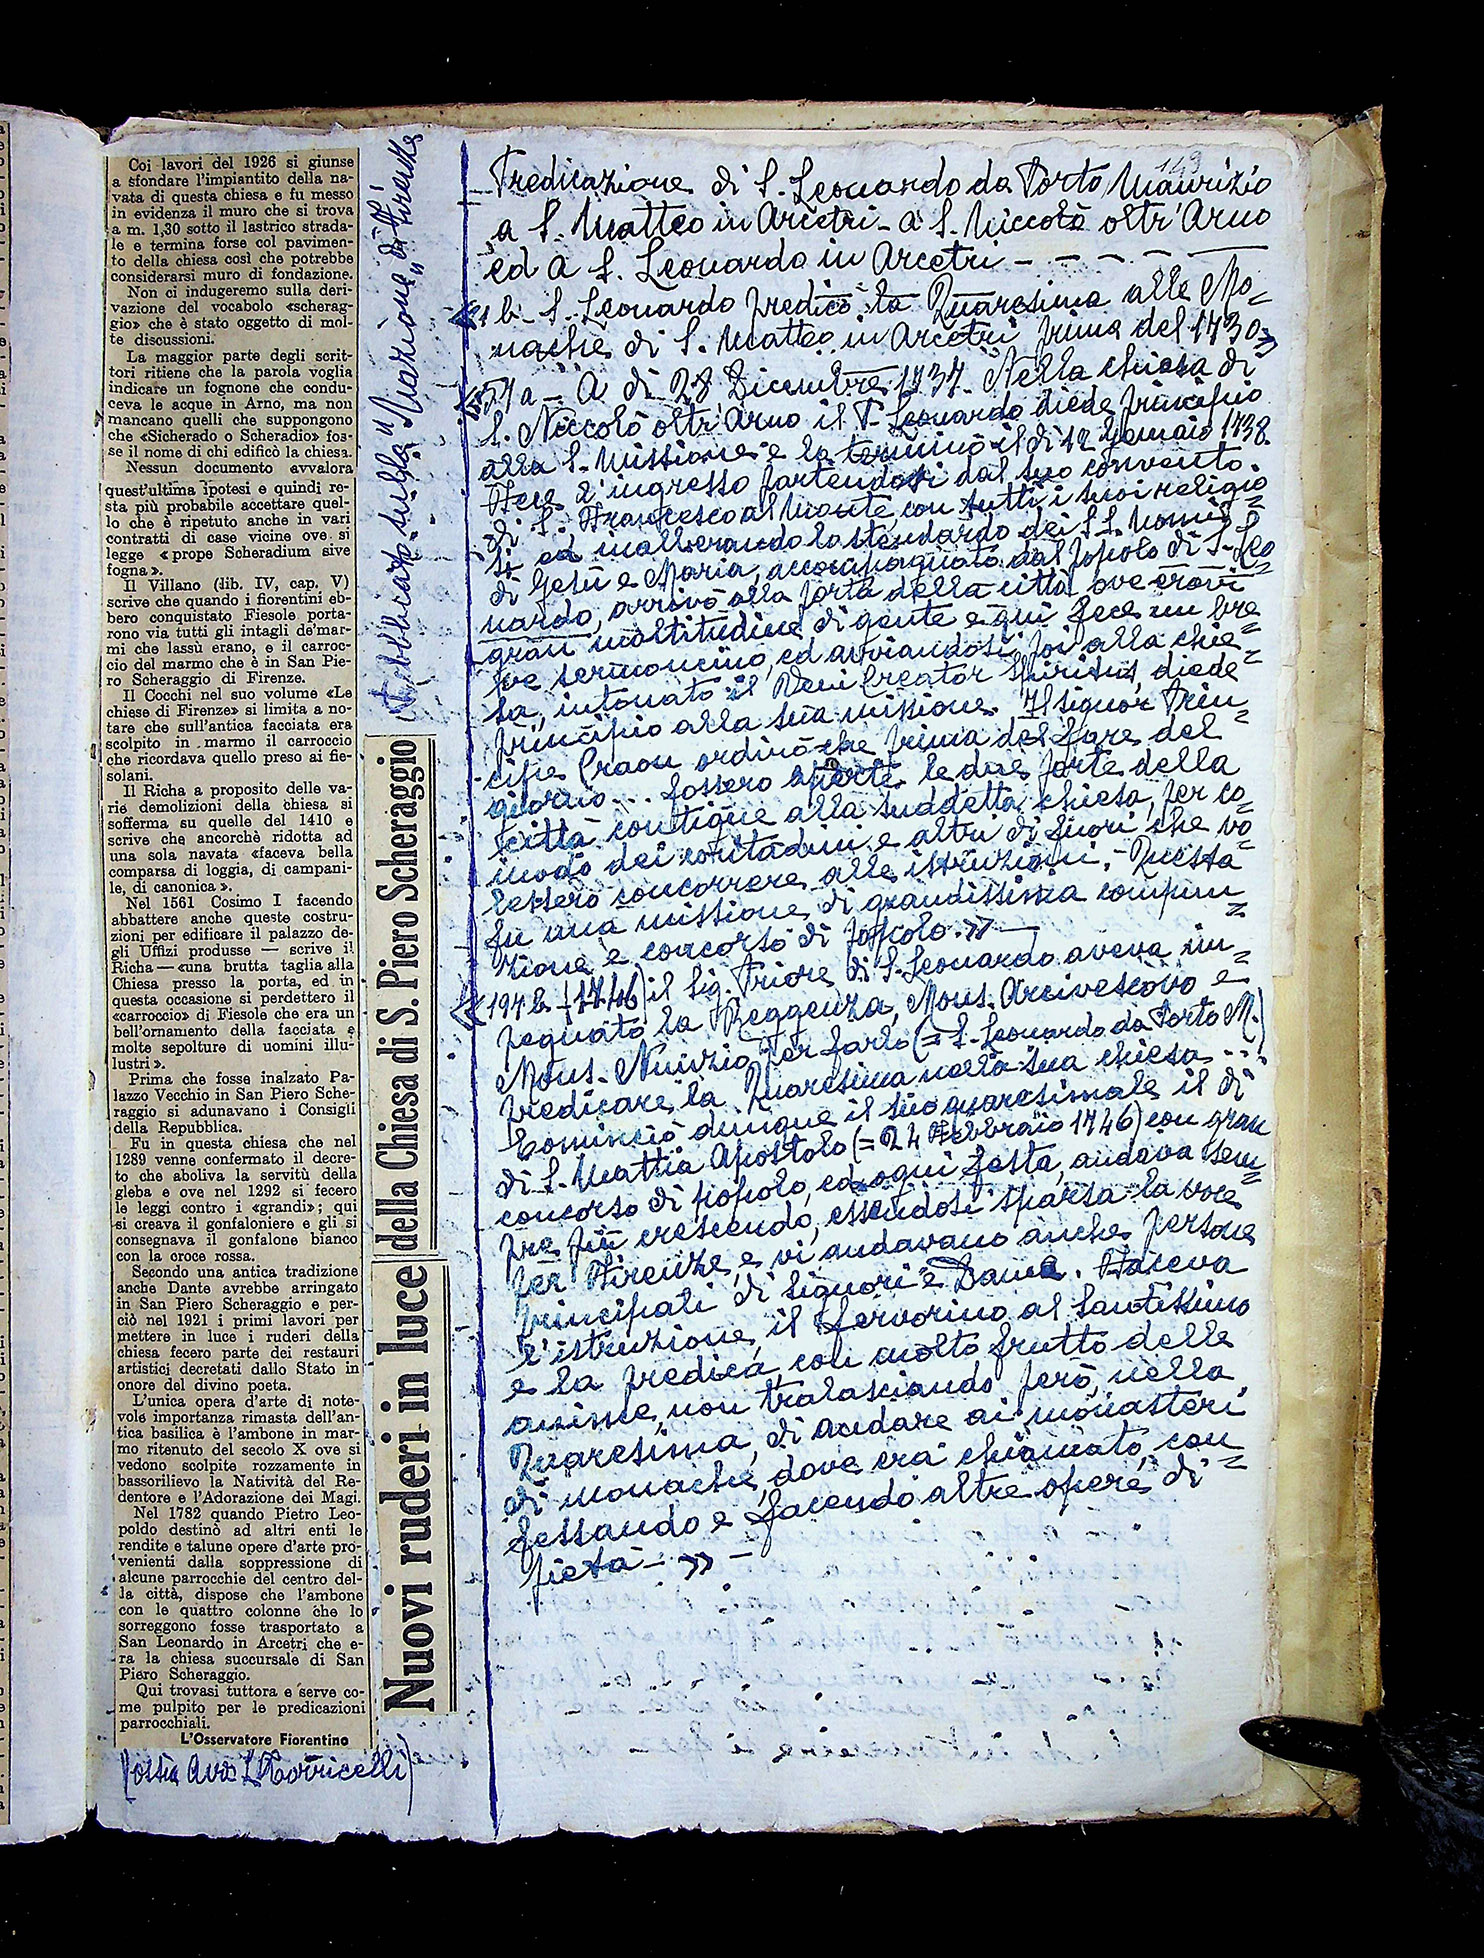 Coi lavori del 1926 si giunse
a sfondare l'impiantito della na-
vata di questa chiesa e fu messo
in evidenza il muro che si trova
a m. 1,30 sotto il lastrico strada-
le e termina forse col pavimen-
to della chiesa così che potrebbe
considerarsi muro di fondazione.
Non ci indugeremo sulla deri-
vazione del vocabolo «scherag-
gio» che è stato oggetto di mol-
te discussioni.
La maggior parte degli scrit-
tori ritiene che la parola voglia
indicare un fognone che condu-
ceva le acque in Arno, ma non
mancano quelli che suppongono
che «Sicherado o Scheradio» fos-
se il nome di chi edificò la chiesa.
Nessun documento avvalora
quest'ultima ipotesi e quindi re-
sta più probabile accettare quel-
lo che è ripetuto anche in vari
contratti di case vicine ove si
legge «prope Scheradium sive
fogna».
Il Villano (lib. IV, cap. V)
scrive che quando i fiorentini eb-
bero conquistato Fiesole porta-
rono via tutti gli intagli de'mar-
mi che lassù erano, e il carroc-
cio del marmo che è in San Pie-
ro Scheraggio di Firenze.
Il Cocchi nel suo volume «Le
chiese di Firenze» si limita a no-
tare che sull'antica facciata era
scolpito in marmo il carroccio
che ricordava quello preso ai fie-
solani.
Il Richa a proposito delle va-
rie demolizioni della chiesa si
sofferma su quelle del 1410 e
scrive che ancorchè ridotta ad
una sola navata «faceva bella
comparsa di loggia, di campani-
le, di canonica».
Nel 1561 Cosimo I facendo
abbattere anche queste costru-
zioni per edificare il palazzo de-
gli Uffizi produsse — scrive il
Richa — «una brutta taglia alla
Chiesa presso la porta, ed in
questa occasione si perdettero il
«carroccio» di Fiesole che era un
bell'ornamento della facciata e
molte sepolture di uomini illu-
lustri».
Prima che fosse inalzato Pa-
lazzo Vecchio in San Piero Sche-
raggio si adunavano i Consigli
della Repubblica.
Fu in questa chiesa che nel
1289 venne confermato il decre-
to che aboliva la servitù della
gleba e ove nel 1292 si fecero
le leggi contro i «grandi»; qui
si creava il gonfaloniere e gli si
consegnava il gonfalone bianco
con la croce rossa.
Secondo una antica tradizione
anche Dante avrebbe arringato
in San Piero Scheraggio e per-
ciò nel 1921 i primi lavori per
mettere in luce i ruderi della
chiesa fecero parte dei restauri
artistici decretati dallo Stato in
onore del divino poeta.
L'unica opera d'arte di note-
vole importanza rimasta dell'an-
tica basilica è l'ambone in mar-
mo ritenuto del secolo X ove si
vedono scolpite rozzamente in
bassorilievo la Natività del Re-
dentore e l'Adorazione dei Magi.
Nel 1782 quando Pietro Leo-
poldo destinò ad altri enti le
rendite e talune opere d'arte pro-
venienti dalla soppressione di
alcune parrocchie del centro del-
la città, dispose che l'ambone
con le quattro colonne che lo
sorreggono fosse trasportato a
San Leonardo in Arcetri che e-
ra la chiesa succursale di San
Piero Scheraggio.
Qui trovasi tuttora e serve co-
me pulpito per le predicazioni
parrocchiali.
L'Osservatore Fiorentino
Torricelli)
Nuovi ruderi in luce della Chiesa di S. Piero Scheraggio
Pubblicato sulla "Nazione" di Firenze
149
Predicazione di S. Leonardo da Porto Maurizio
a S. Matteo in Arcetri - a S. Niccolò oltr'Arno
ed a S. Leonardo in Arcetri - - - - -
b - S. Leonardo predicò la Quaresima alle Mo=
nache di S. Matteo in Arcetri prima del 1730»
«57a - A di 28 Dicembre 1737. Nella chiesa di
S. Niccolò oltr'Arno il P. Leonardo diede principio
alla S. Missione e la terminò il dì 12 Gennaio 1738.
Fece l'ingresso partendosi dal suo convento
di S. Francesco al Monte, con tutti i suoi religio=
si ed inalberando lo stendardo dei SS. Nomi
di Gesù e Maria, accompagnato dal popolo di S. Leo=
nardo, arrivò alla porta della città ove trovò
gran moltitudine di gente e qui fece un bre=
ve sermoncino, ed avviandosi poi alla chie=
sa, intonato il Veni Creator Spiritus, diede
principio alla sua missione. Il signor Prin=
cipe Craon ordinò che prima del fare del
giorno... fossero aperte le due porte della
città contigue alla suddetta chiesa, per co=
modo dei contadini e altri di fuori che vo=
lessero concorrere alle istruzioni. - Questa
fu una missione di grandissima compun=
zione e concorso di popolo.» —
«194b - (1746) il Sig. Priore di S. Leonardo aveva im=
pegnato la Reggenza, Mons. Arcivescovo e
Mons. Nunzio per farlo (= S. Leonardo da Porto M.)
predicare la Quaresima nella sua chiesa ...
Cominciò dunque il suo quaresimale il dì
di S. Mattia Apostolo (= 24 Febbraio 1746) con gran
concorso di popolo, ed ogni festa, andava sem=
pre più crescendo, essendosi sparsa la voce
per Firenze, e vi andavano anche persone
principali di Signori e Dame. Faceva
l'istruzione, il fervorino al Santissimo
e la predica con molto frutto delle
anime, non tralasciando però, nella
Quaresima, di andare ai monasteri
di monache, dove era chiamato, con=
fessando e facendo altre opere di
pietà - » -